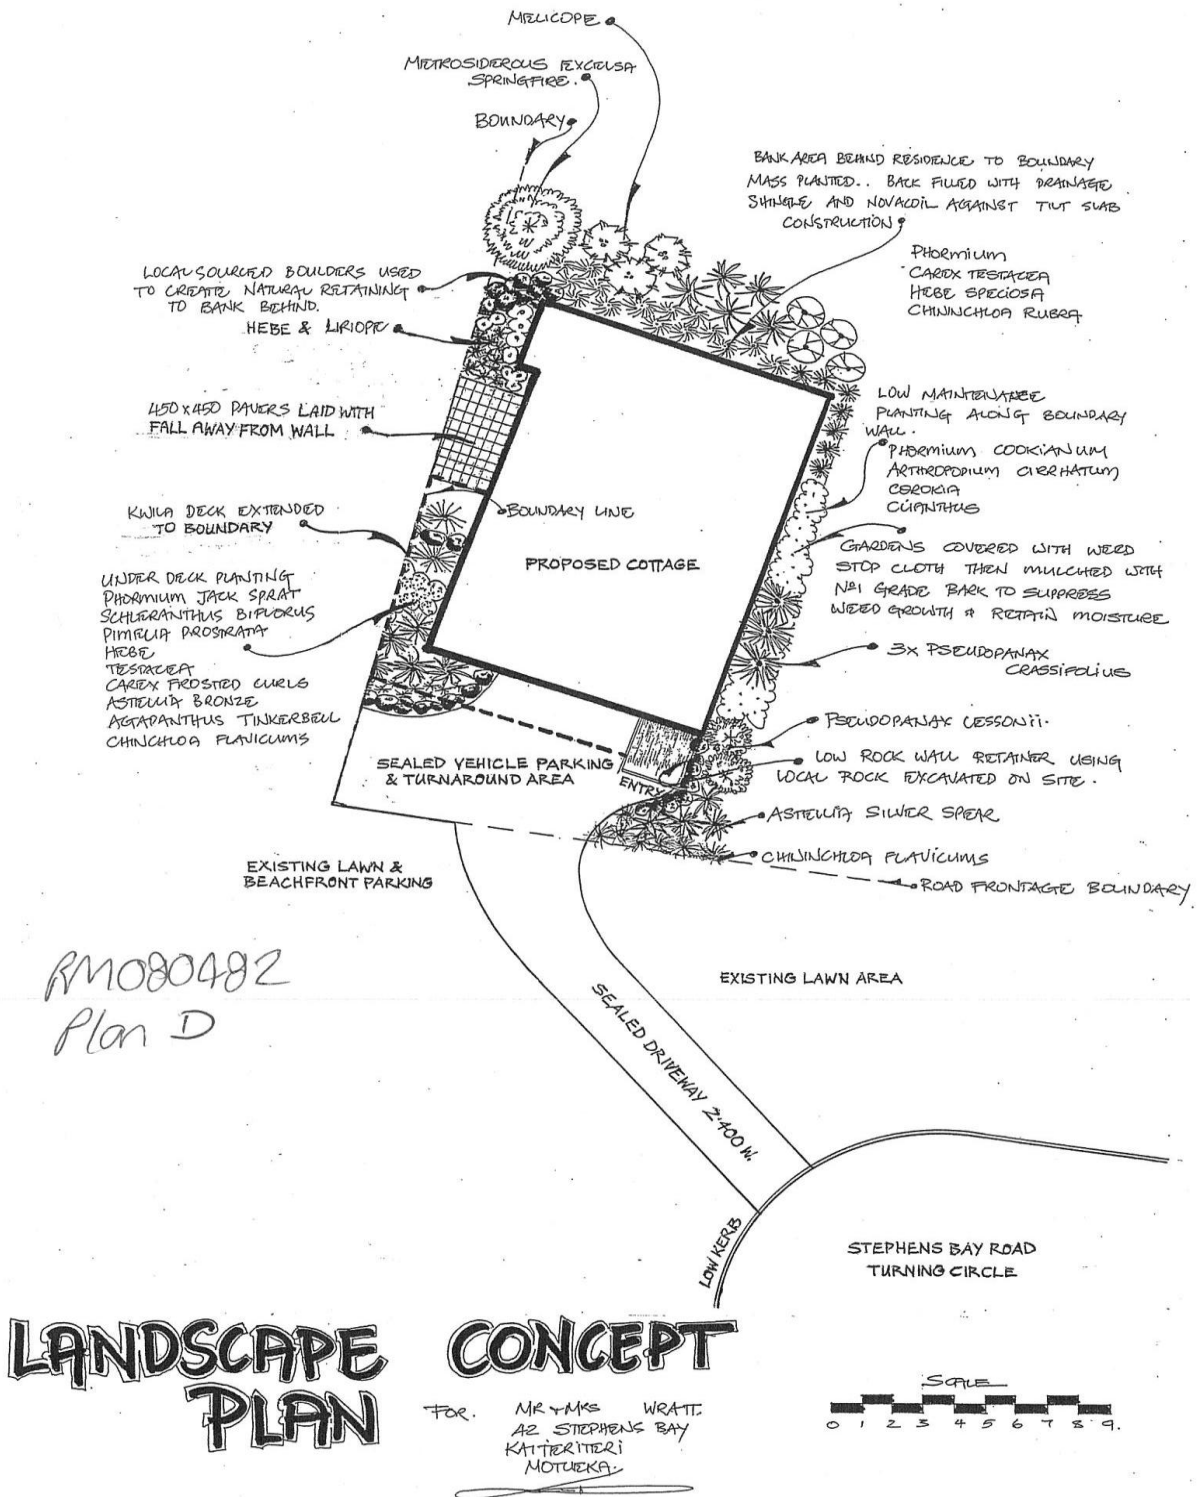 MELICOPE
METROSIDEROUS EXCELSA
SPRINGFIRE.
BOUNDARY
BANK AREA BEHIND RESIDENCE TO BOUNDARY
MASS PLANTED.. BACK FILLED WITH DRAINAGE
SHINGLE AND NOVACOIL AGAINST TILT SLAB
CONSTRUCTION
PHORMIUM
CAREX TESTACEA
HEBE SPECIOSA
CHININCHLOA RUBRA
LOCAL SOURCED BOULDERS USED
TO CREATE NATURAL RETAINING
TO BANK BEHIND.
HEBE & LIRIOPE
450 x 450 PAVERS LAID WITH
FALL AWAY FROM WALL
LOW MAINTENANCE
PLANTING ALONG BOUNDARY
WALL.
PHORMIUM COOKIANUM
ARTHROPODIUM CIRRHATUM
COROKIA
CLIANTHUS
KWILA DECK EXTENDED
TO BOUNDARY
BOUNDARY LINE
PROPOSED COTTAGE
GARDENS COVERED WITH WEED
STOP CLOTH THEN MULCHED WITH
No1 GRADE BARK TO SUPPRESS
WEED GROWTH & RETAIN MOISTURE
UNDER DECK PLANTING
PHORMIUM JACK SPRAT
SCHLERANTHUS BIFLORUS
PIMELIA PROSTRATA
HEBE
TESTACEA
CAREX FROSTED CURLS
ASTELLIA BRONZE
AGAPANTHUS TINKERBELL
CHINCHLOA FLAVICUMS
3x PSEUDOPANAX
CRASSIFOLIUS
PSEUDOPANAX LESSONII.
LOW ROCK WALL RETAINER USING
LOCAL ROCK EXCAVATED ON SITE.
SEALED VEHICLE PARKING
& TURNAROUND AREA
ENTRY
ASTELLIA SILVER SPEAR
CHININCHLOA FLAVICUMS
ROAD FRONTAGE BOUNDARY
EXISTING LAWN &
BEACHFRONT PARKING
RM080482
Plan D
EXISTING LAWN AREA
SEALED DRIVEWAY 2.400 W.
LOW KERB
STEPHENS BAY ROAD
TURNING CIRCLE
LANDSCAPE CONCEPT
PLAN
FOR. MR & MRS WRATT.
A2 STEPHENS BAY
KAITERITERI
MOTUEKA.
SCALE
0 1 2 3 4 5 6 7 8 9.